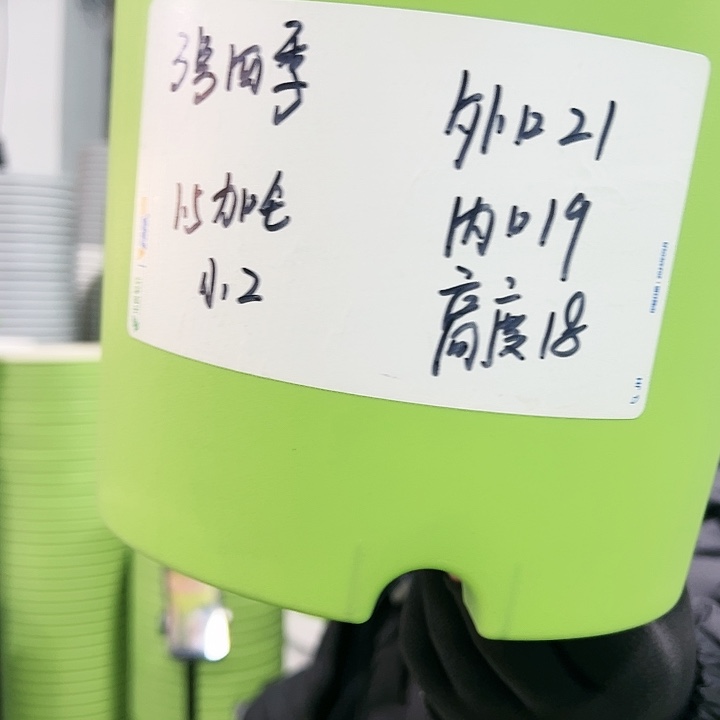 张四季
1.5加仑
小2
外口21
内口19
高度18